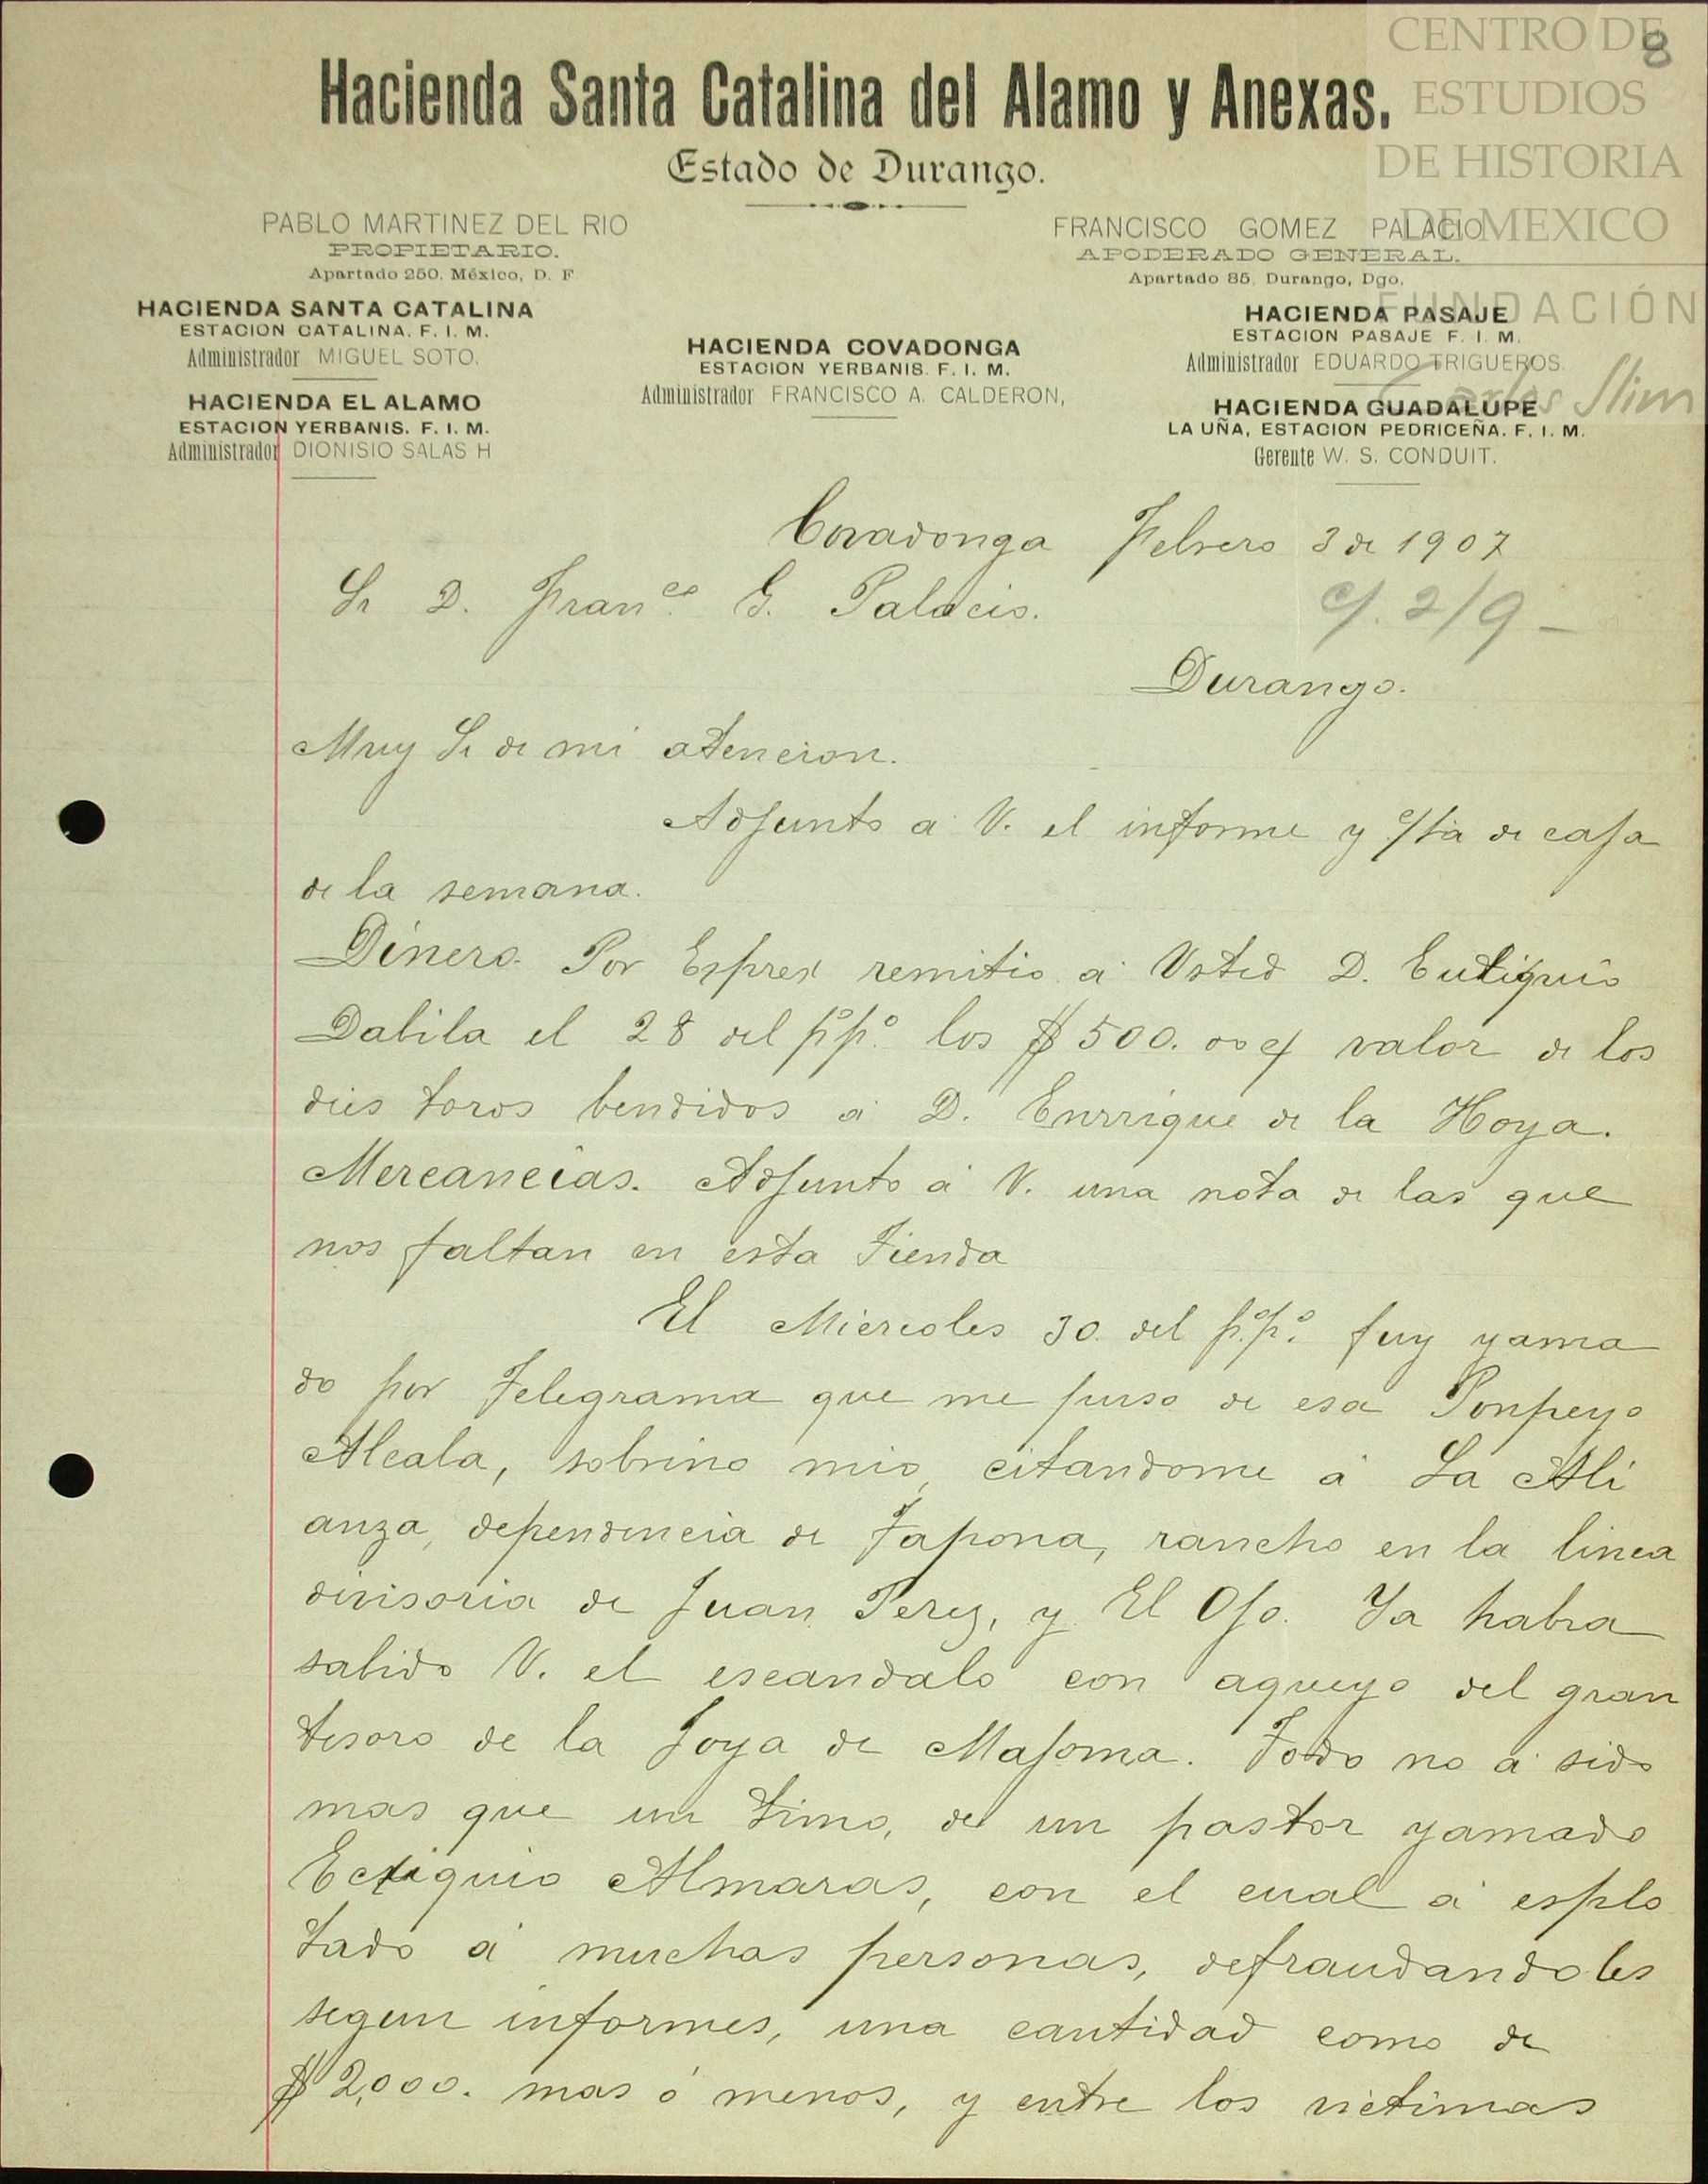 CENTRO DE
ESTUDIOS
DE HISTORIA
DE MEXICO
FUNDACIÓN
Carlos Slim
8
Hacienda Santa Catalina del Alamo y Anexas.
Estado de Durango.
PABLO MARTINEZ DEL RIO
PROPIETARIO.
Apartado 250. México, D. F
FRANCISCO GOMEZ PALACIO
APODERADO GENERAL.
Apartado 85, Durango, Dgo.
HACIENDA SANTA CATALINA
ESTACION CATALINA. F. I. M.
Administrador MIGUEL SOTO.
HACIENDA EL ALAMO
ESTACION YERBANIS. F. I. M.
Administrador DIONISIO SALAS H
HACIENDA COVADONGA
ESTACION YERBANIS. F. I. M.
Administrador FRANCISCO A. CALDERON,
HACIENDA PASAJE
ESTACION PASAJE F. I. M.
Administrador EDUARDO TRIGUEROS.
HACIENDA GUADALUPE
LA UÑA, ESTACION PEDRICEÑA. F. I. M.
Gerente W. S. CONDUIT.
Covadonga Febrero 3 de 1907
Sr D. Franco. G. Palacio.
c/. 2/9 -
Durango.
Muy Sr de mi atencion.
Adjunto a V. el informe y c/ta de caja
de la semana.
Dinero. Por Espres remitio a Usted D. Eutiquio
Dabila el 28 del p.p.º los $500.00 c/ valor de los
dies toros bendidos a D. Enrrique de la Hoya.
Mercancias. Adjunto á V. una nota de las que
nos faltan en esta Tienda
El Miercoles 30 del p.p.º fuy yama
do por Telegrama que me puso de esa Ponpeyo
Alcala, sobrino mio, citandome a La Ali
anza, dependencia de Tapona, rancho en la linea
divisoria de Juan Perez, y El Ojo. Ya habra
sabido V. el escandalo con aqueyo del gran
tesoro de la Joya de Majoma. Todo no a sido
mas que un timo, de un pastor yamado
Ectiquio Almaras, con el cual a esplo
tado a muchas personas, defraudandoles
segun informes, una cantidad como de
$2,000. mas ó menos, y entre los victimas